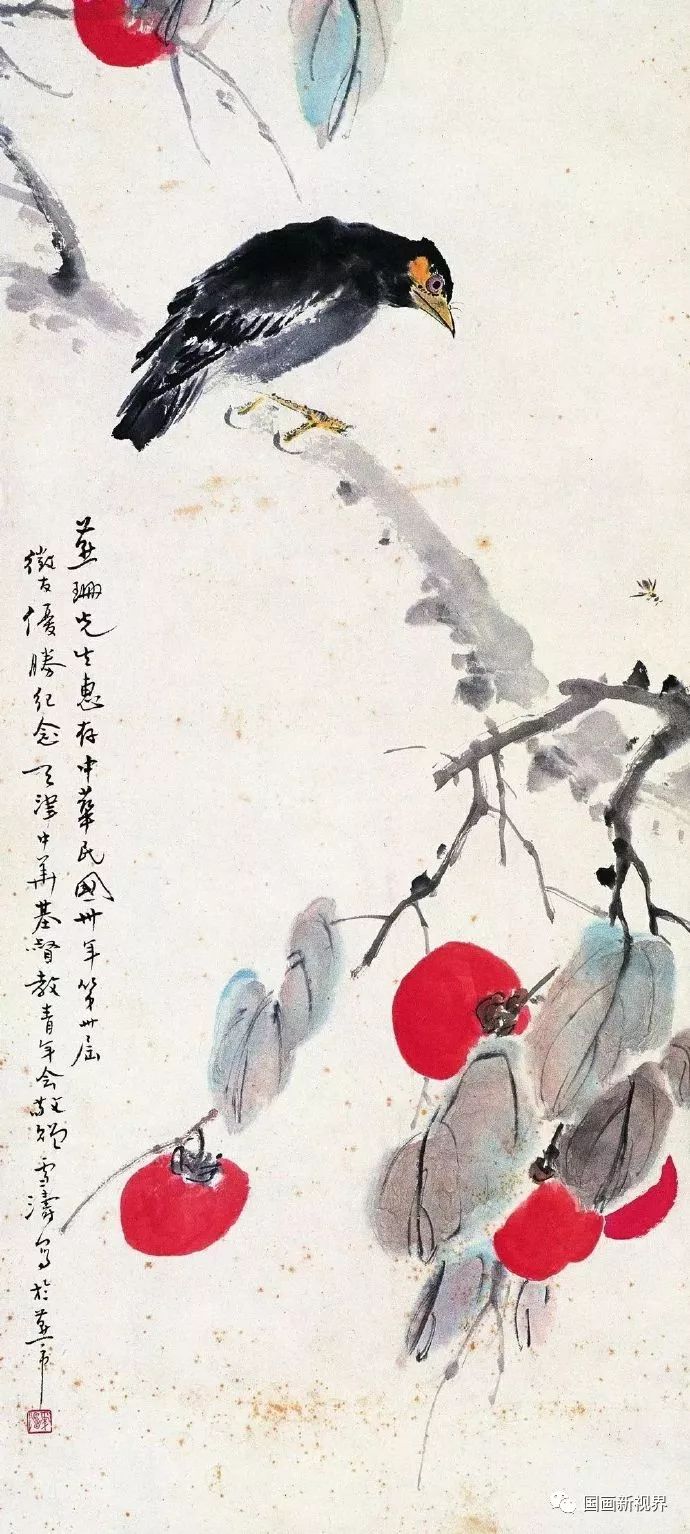 燕珊先生惠存中華民國卅年第卅届
徵友優勝紀念天津中華基督教青年会敬贈雪濤寫於燕市
国画新视界